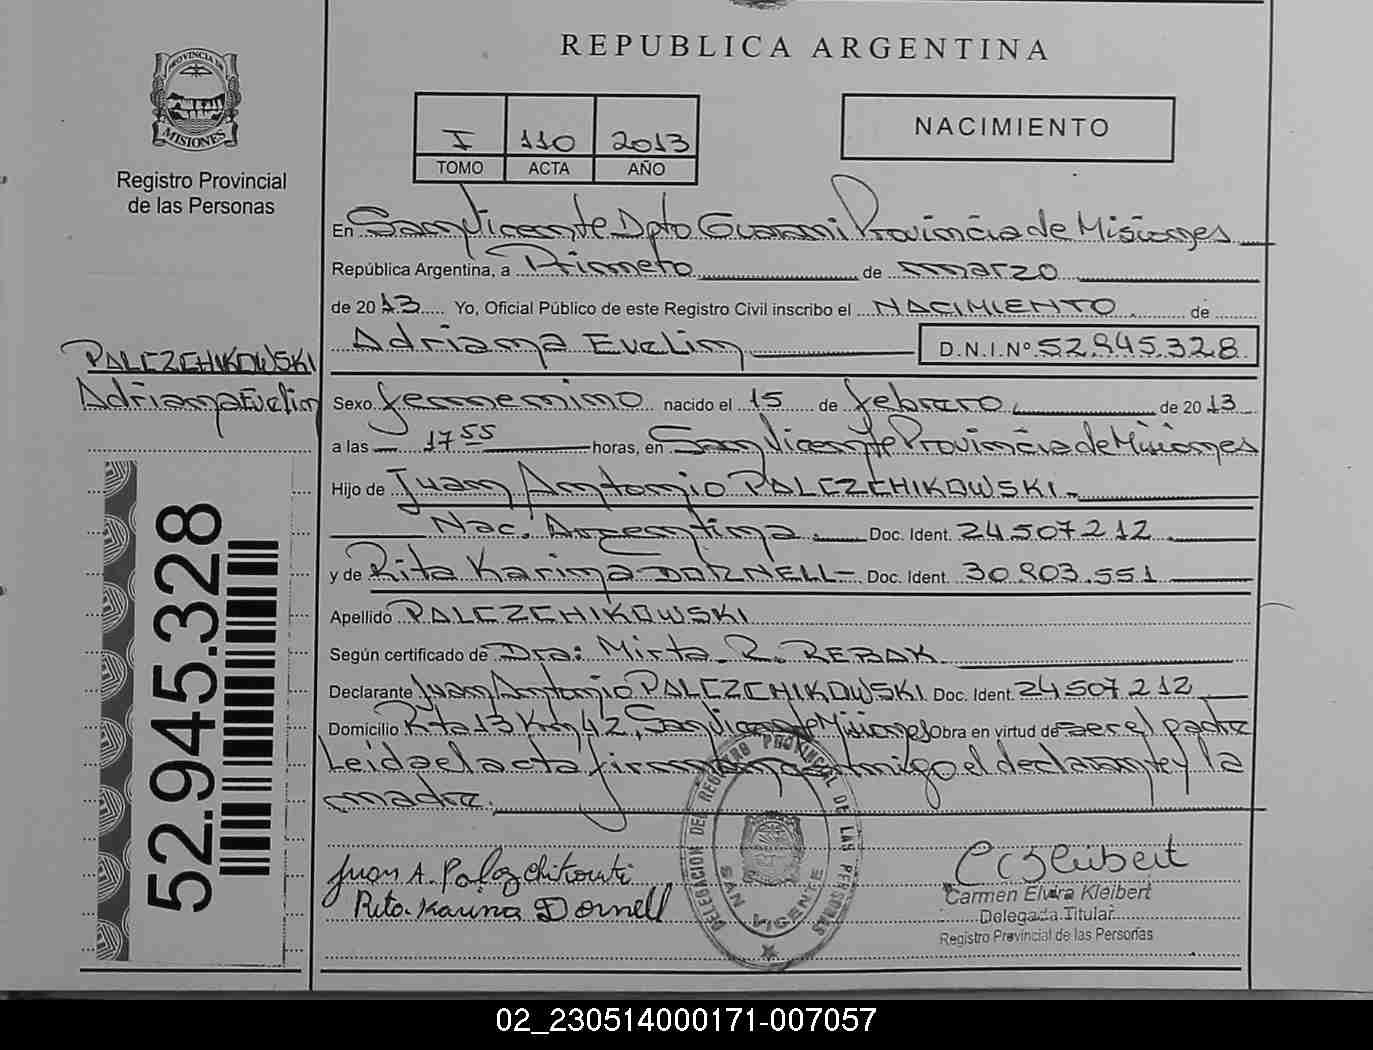 PROVINCIA DE
MISIONES
Registro Provincial
de las Personas
PALCZCHIKOWSKI
Adriana Evelin
52.945.328
REPUBLICA ARGENTINA
I 110 2013
TOMO ACTA AÑO
NACIMIENTO
En San Vicente Dpto Guarani Provincia de Misiones
República Argentina, a Primero de marzo
de 2013 Yo, Oficial Público de este Registro Civil inscribo el NACIMIENTO de
Adriana Evelin D.N.I.Nº 52.945.328
Sexo femenino nacido el 15 de febrero de 2013
a las 17 55 horas, en San Vicente Provincia de Misiones
Hijo de Juan Antonio PALCZCHIKOWSKI.-
Nac. Argentina. Doc. Ident. 24.507.212
y de Rita Karina DORNELL- Doc. Ident. 30.803.551
Apellido PALCZCHIKOWSKI
Según certificado de Dra: Mirta R. REBAK
Declarante Juan Antonio PALCZCHIKOWSKI Doc. Ident. 24.507.212
Domicilio Rta 13 Km 42, San Vicente Misiones Obra en virtud de ser el padre
Leida el acta firman conmigo el declarante y la
madre.
Juan A. Palczchikowski
Rita Karina Dornell
DELEGACION DEL REGISTRO PROVINCIAL DE LAS PERSONAS
SAN VICENTE
C E Kleibert
Carmen Elvira Kleibert
Delegada Titular
Registro Provincial de las Personas
02_230514000171-007057